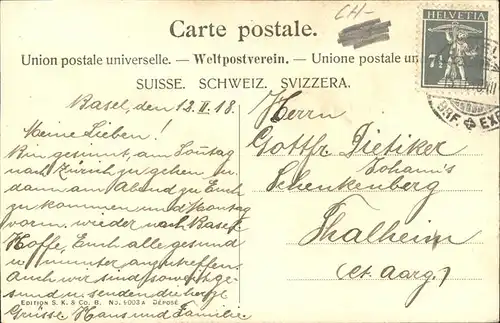 Carte postale.
CH-
Union postale universelle. — Weltpostverein. — Unione postale un
SUISSE. SCHWEIZ. SVIZZERA.
HELVETIA
7½
BRF. EXP
Basel, den 12. II. 18.
Meine Lieben!
Bin gesinnt, am Sonntag
nach Zürich zu gehen u.
dann am Abend zu Euch
zu kommen und Montag
vorm. wieder nach Basel.
Hoffe, Euch alle gesund
u. munter anzutreffen.
Auch wir sind soweit ge-
sund u. senden die herzl.
Grüsse Hans und Familie
Herrn
Gottfr. Dietiker
Johann's
Schenkenberg
Thalheim
(Ct. Aarg.)
EDITION S. K. & Co. B. No. 6003A DÉPOSÉ